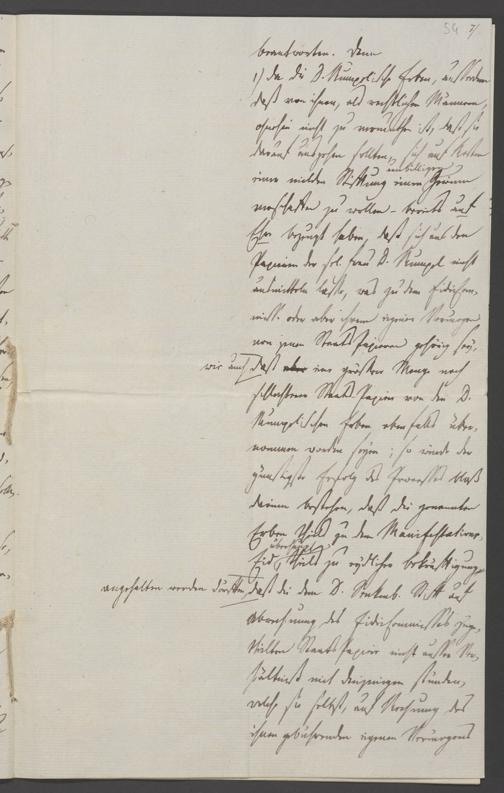 54 7/
beantworten. Denn
1) da die D. Rumpelische Erben, außerdem
daß von ihnen, als rechtlichen Männern,
ohnehin nicht zu vermuthen ist, daß sie
darauf ausgehen sollten, sich auf Kosten
einer milden Stiftung einen unbilligen Gewinn
verschaffen zu wollen bereits auf
Ehre bezeugt haben, daß sich aus den
Papieren der sel. Frau D. Rumpel nicht
ausmitteln lasse, was zu dem Fideicom-
miß oder aber ihrem eignen Vermögen
von jenen Staats Papieren gehörig sey,
wie auch, daß eine größere Menge noch
schlechterer Staats Papiere von den D.
Rumpelischen Erben ebenfalls über-
nommen worden seyen; so würde der
günstigste Erfolg des Processes bloß
darinn bestehen, daß die genannten
Erben theils zu dem Manifestations-
Eid überhaupt, theils zu eydlicher Bekräftigung
angehalten werden dürften, daß die dem D. Senkenb. Stift auf
Abrechnung des Fideicommisses zuge-
theilten Staats Papiere nicht außer Ver-
hältniß mit denjenigen stünden,
welche sie selbst, auf Rechnung des
ihnen gebührenden eignen Vermögens